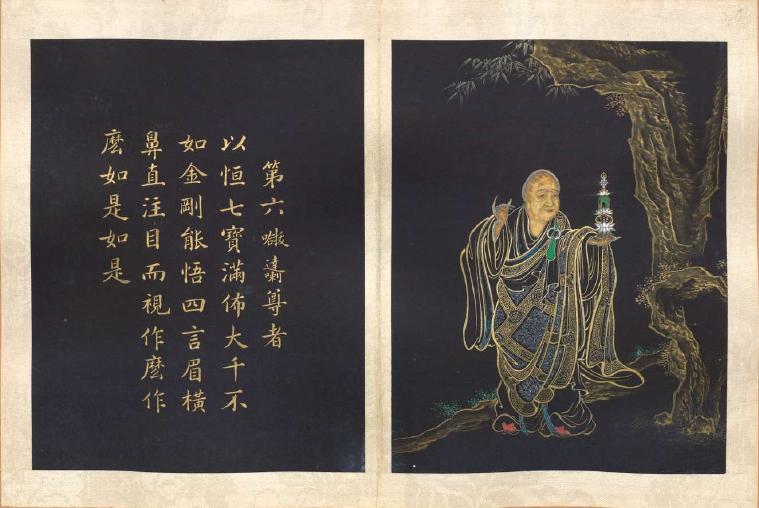 第六尊者
以恒七寶滿佈大千不
如金剛能悟四言眉橫
鼻直注目而視作麽作
麽如是如是